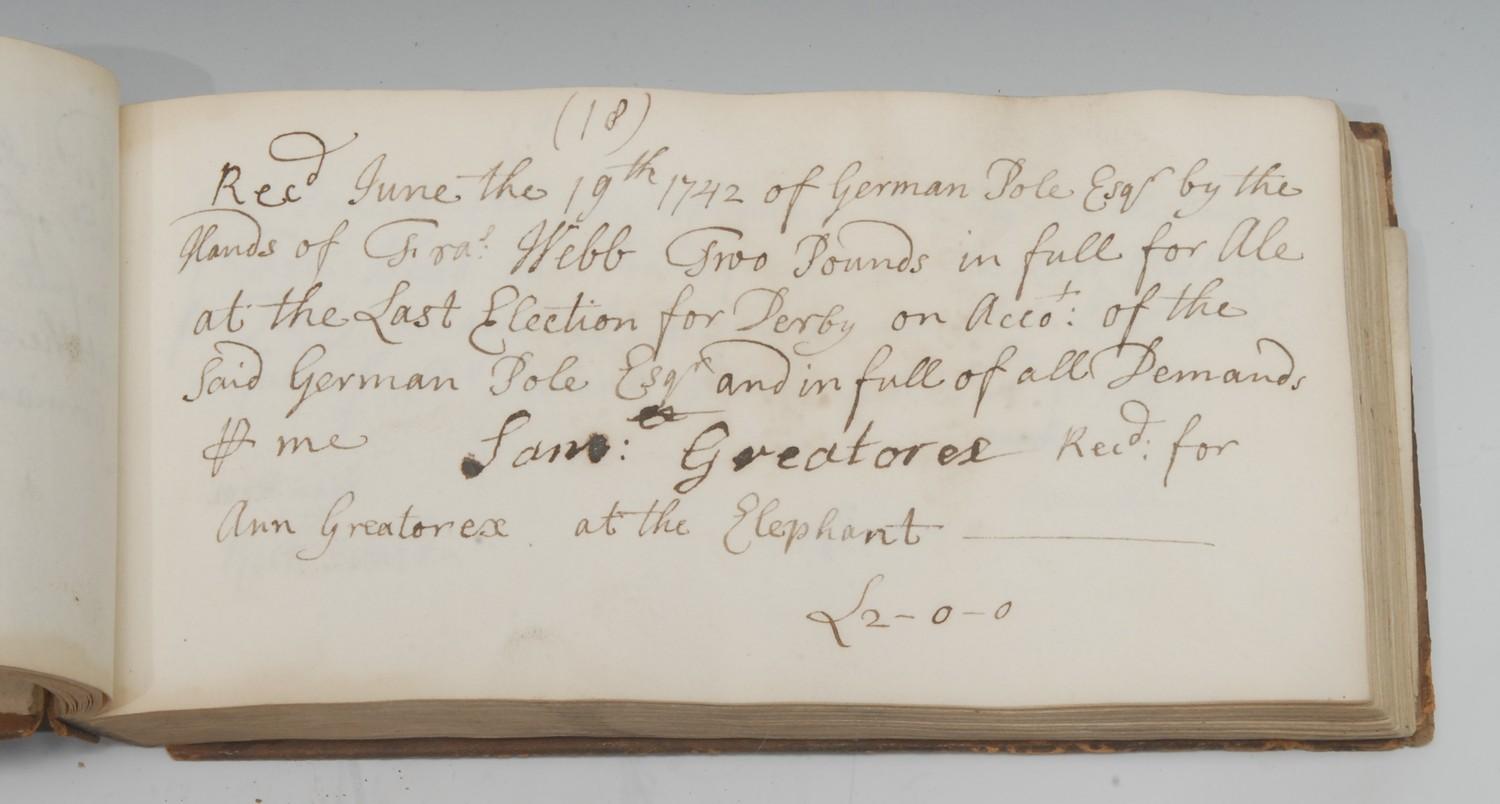 (18)
Recd June the 19th 1742 of German Pole Esqr by the
Hands of Fras: Webb Two Pounds in full for Ale
at the Last Election for Derby on Accot: of the
Said German Pole Esqr and in full of all Demands
⅌ me Saml: Greatorex Recd: for
Ann Greatorex at the Elephant
£2-0-0